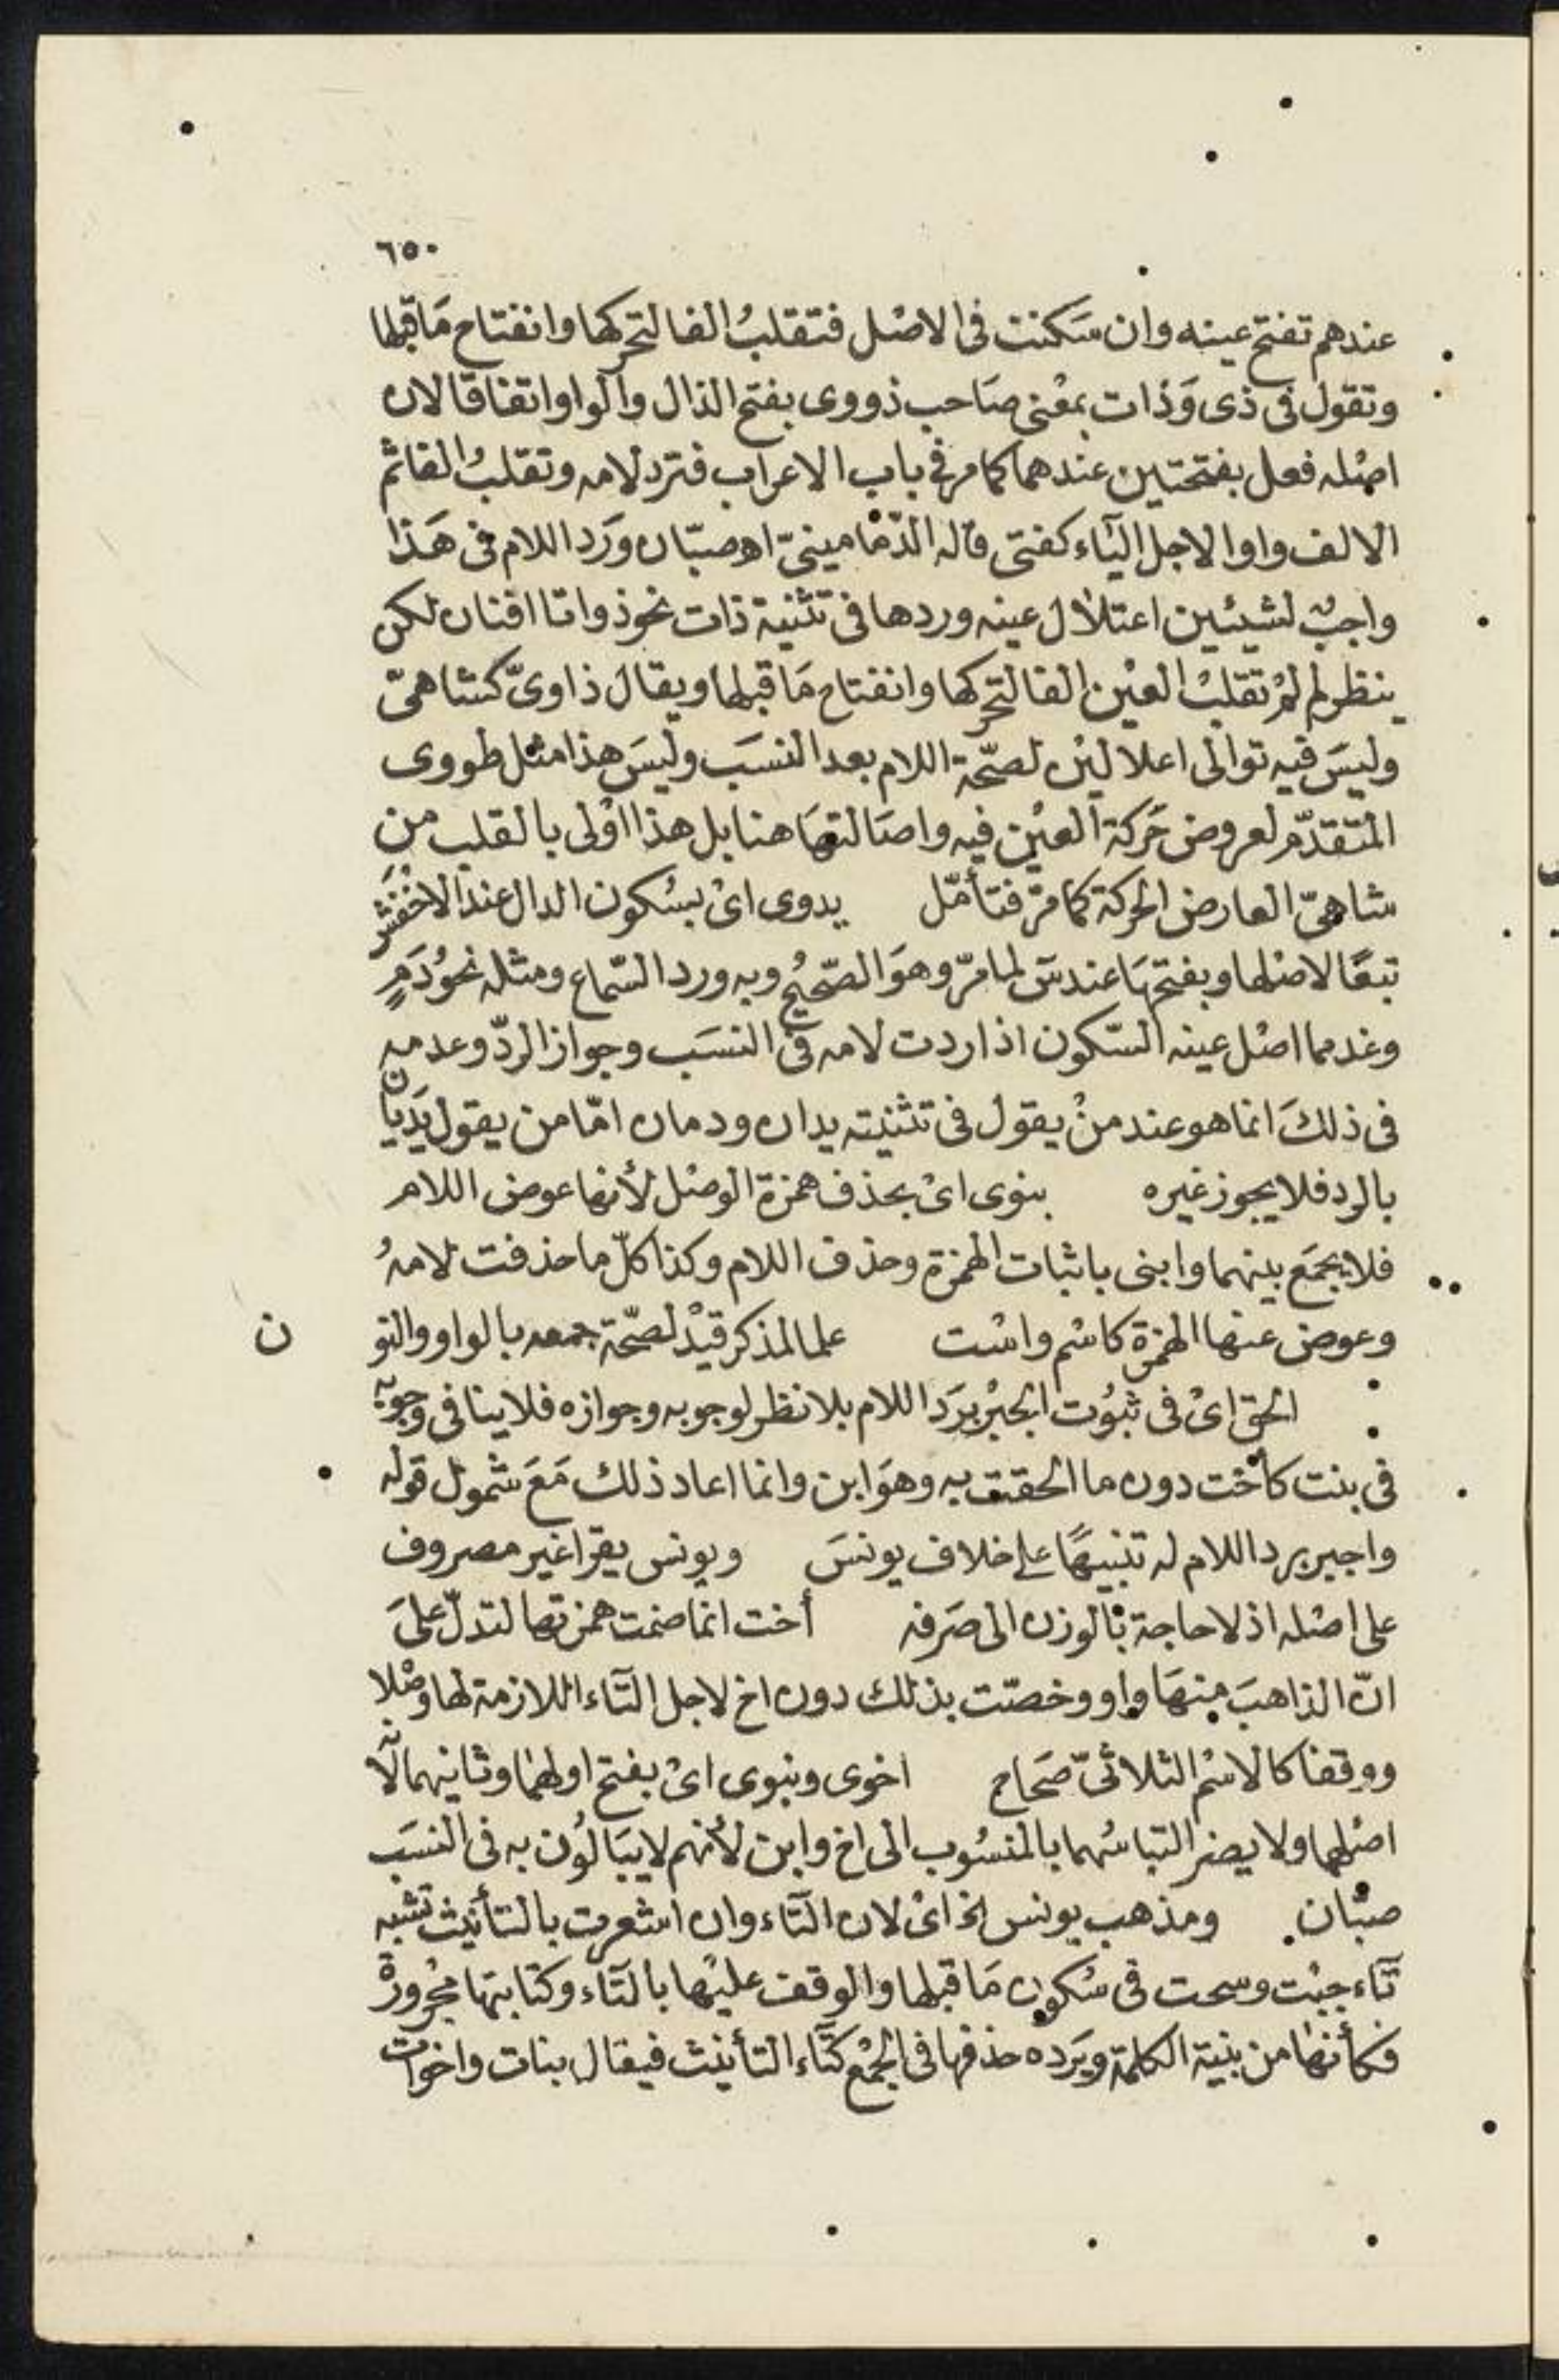 ٦٥٠
عندهم تفتح عينه وان سَكنت فى الاصْل فتقلبُ الفا لتحركها وانفتاح مَا قبلها
وتقول فى ذى وَذات بمعْنى صَاحب ذووى بفتح الذال والواو اتفاقا لان
اصْله فعل بفتحتين عندهما كما مر فى باب الاعراب فترد لامه وتقلبُ الفا ثم
الالف واوا لاجل اليَاء كفتى قاله الدّمَامينىّ اهـ صبّان وَرَد اللام فى هَذا
واجبٌ لشيئين اعتلال عينه وردها فى تثنية ذات نحو ذواتا افنان لكن
ينظر لم لمْ تقلبْ العيْن الفا لتحركها وانفتاح مَا قبلها ويقال ذاوىّ كشاهىّ
وليسَ فيه توالى اعلاليْن لصّحة اللام بعد النسَب وليسَ هذا مثل طووى
المتقدّم لعروض حَركة العيْن فيه واصَالتهَا هنا بل هذا اوْلى بالقلب من
شاهىّ العارض الحركة كما مرّ فتأمّل يدوى اىْ بسُكون الدال عند الاخْفَش
تبعًا لاصْلها وبفتحهَا عند س لما مرّ وهوَ الصّحيْح وبه ورد السّماع ومثله نحوُ دَمٍ
وغد مما اصْل عينه السّكون اذا ردت لامه فى النسَب وجواز الردّ وعدمه
فى ذلكَ انما هو عند منْ يقول فى تثنيته يدان ودمان امّا من يقول يَدَيَان
بالرد فلا يجوز غيره بنوى اىْ بحذف همزة الوصْل لأنها عوض اللام
فلا يجمَع بينهما وابنى باثبات الهمْزة وحذف اللام وكذا كلّ ما حذفت لامهُ
وعوض عنها الهمْزة كاسْم واسْت علما لمذكر قيْد لصّحة جمعه بالواو والنو ن
الحق اىْ فى ثبوُت الجبْر برَد اللام بلا نظر لوجوبه وجوازه فلا ينافى وجوبَه
فى بنت كأخت دون ما الحقت به وهوَ ابن وانما اعاد ذلك مَعَ شمول قوله
واجبر برد اللام له تنبيهًا على خلاف يونسَ ويونس يقرا غير مصروف
على اصْله اذ لا حاجة بالوزن الى صَرفه أخت انما ضمت همزتها لتدلّ علىَ
انّ الذاهبَ منهَا واو وخصّت بذلك دون اخ لاجل التّاء اللازمة لها وصْلا
ووقفا كالاسْم الثلاثىّ صحَاح اخوى وبنوى اىْ بفتح اولهما وثانيهما لأنّه
اصْلهما ولا يضر التباسُهما بالمنسُوب الى اخ وابن لأنهم لا يبَالوُن به فى النسَب
صبّان ومذهب يونس الخ اىْ لان التّاء وان اشعرت بالتأنيث تشبه
تَاء جبْت وسحت فى سُكون مَا قبلها والوقف عليْها بالتّاء وكتابتها مجْرورَة
فكأنها من بنية الكلمة ويَرده حذفها فى الجمْع كتَاء التأنيث فيقال بنات واخوَات